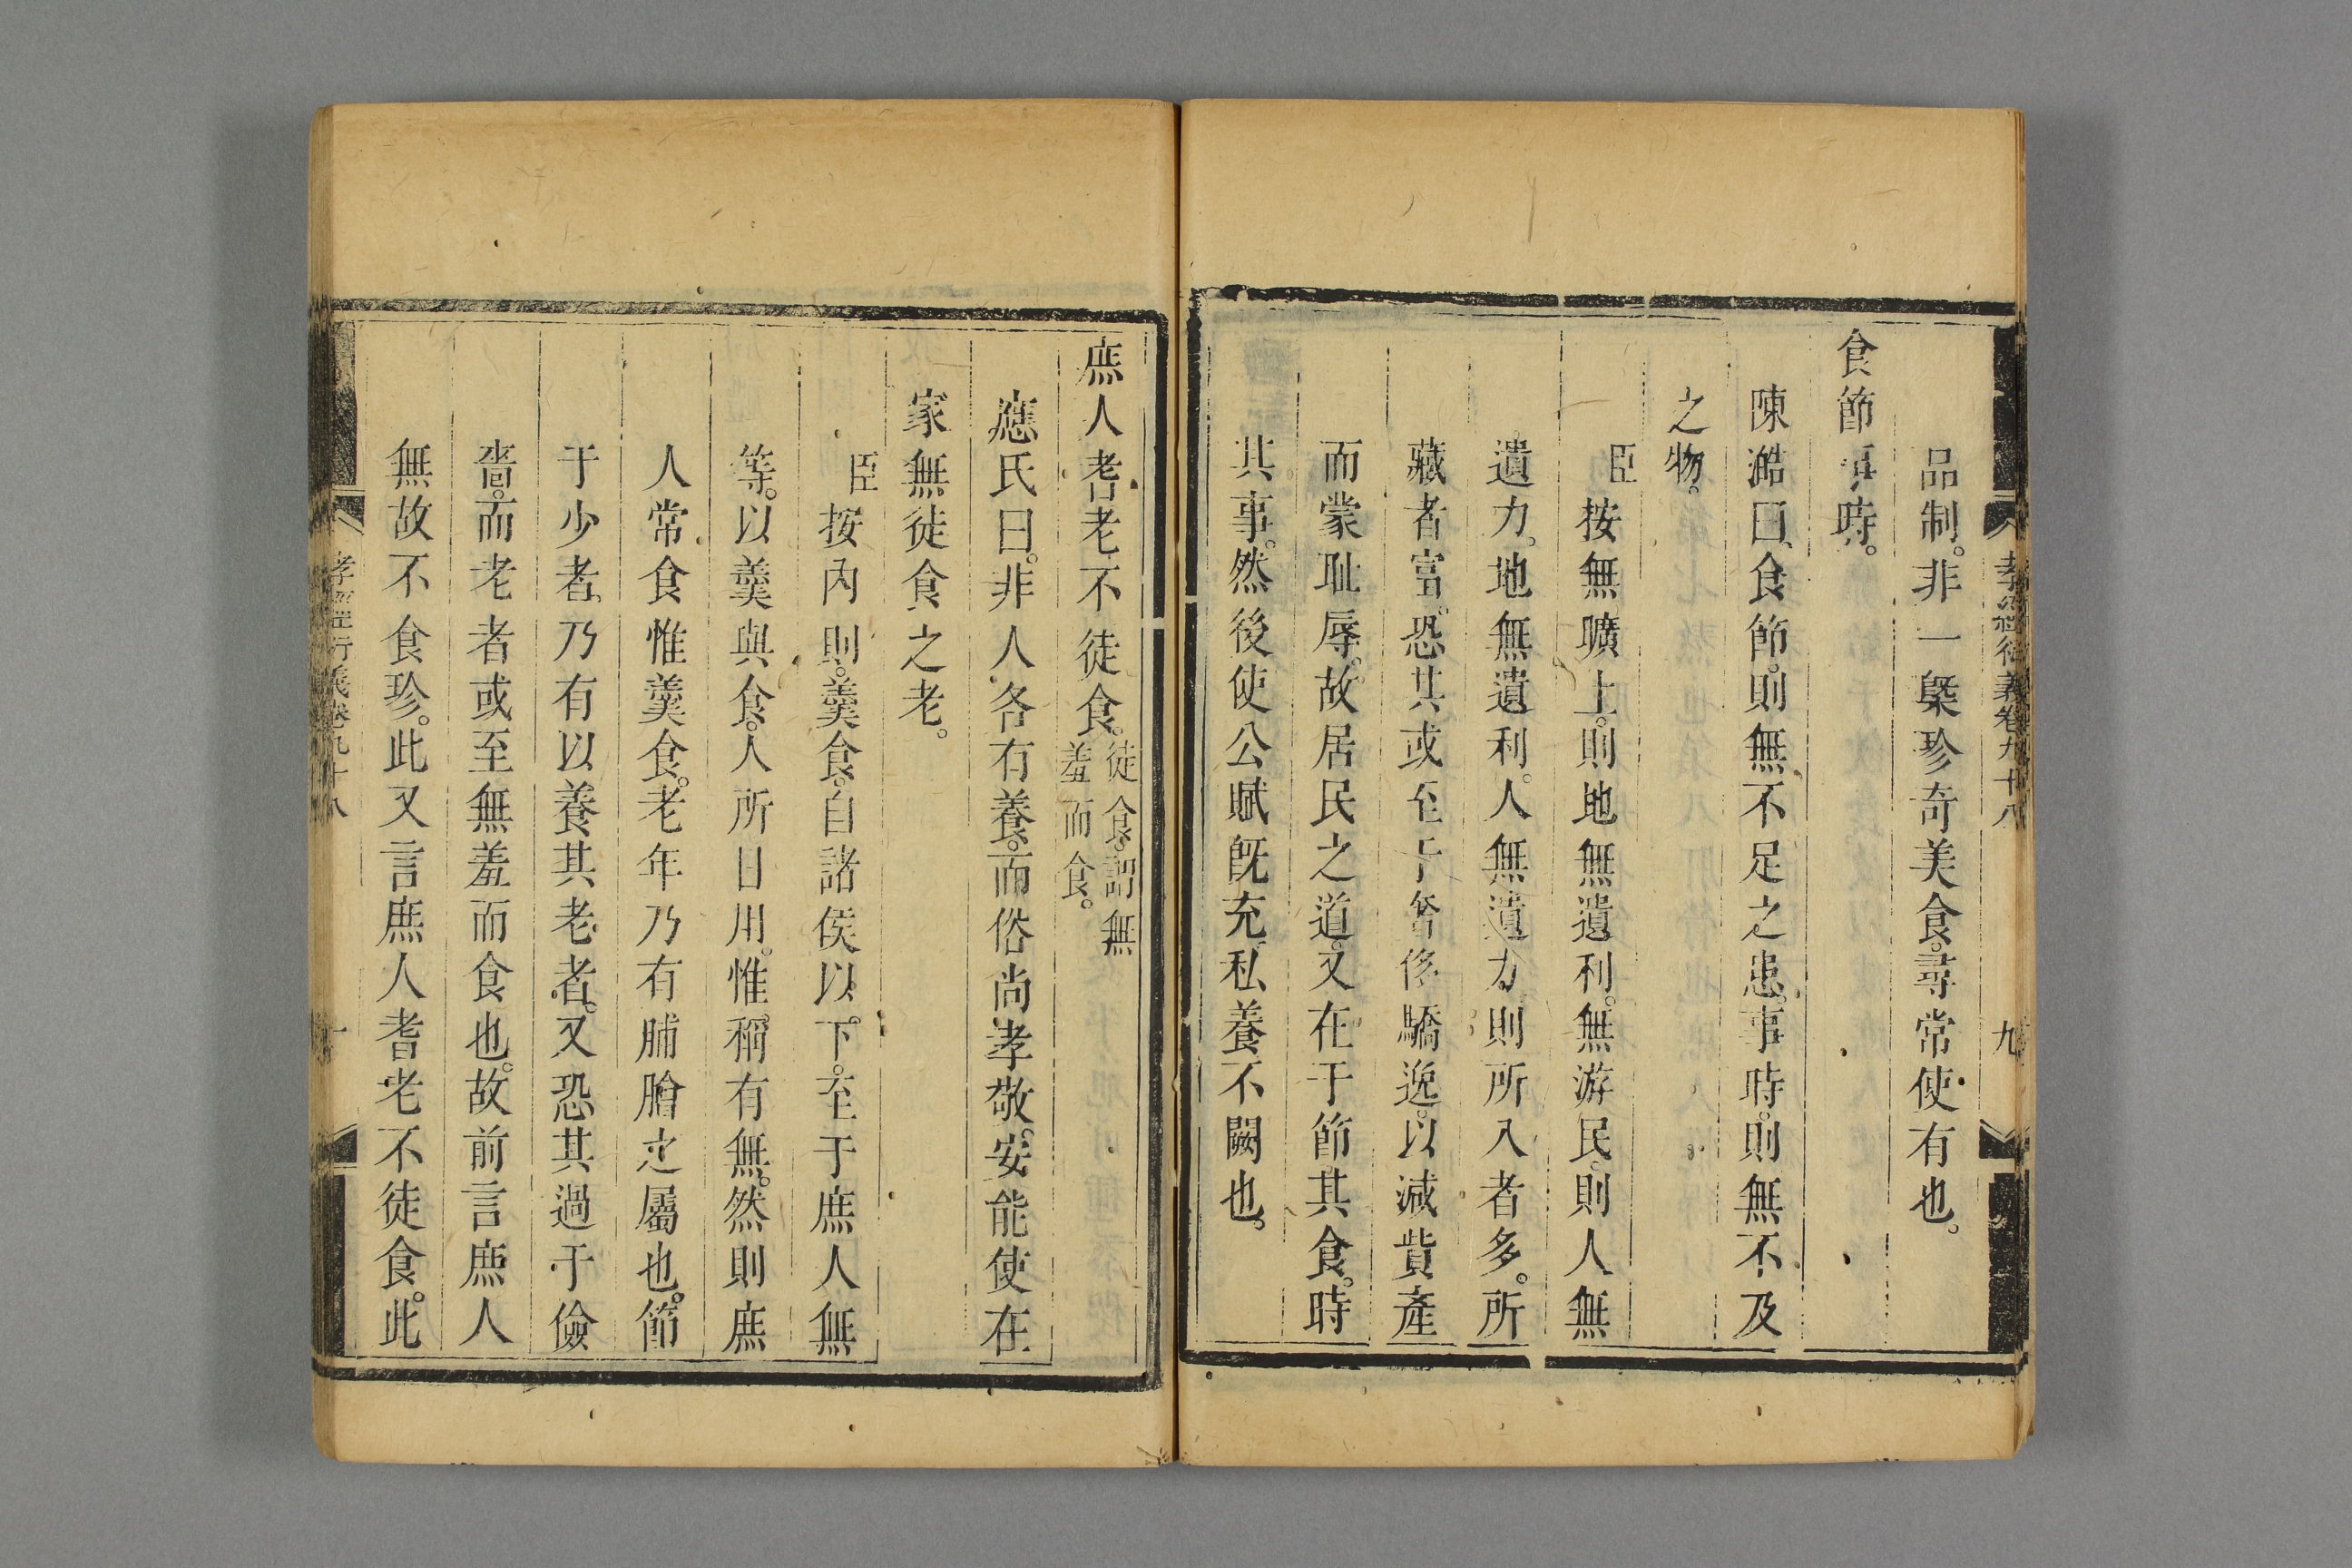 孝經衍義卷九十八
九
品制。非一槩珍奇美食。尋常使有也。
食節事時。
陳澔曰。食節。則無不足之患。事時。則無不及
之物。
臣按無曠土。則地無遺利。無游民。則人無
遺力。地無遺利。人無遺力。則所入者多。所
藏者富。恐其或至于奢侈驕逸。以減貲產
而蒙耻辱。故居民之道。又在于節其食。時
其事。然後使公賦旣充。私養不闕也。
庶人耆老不徒食。
徒食。謂無
羞而食。
應氏曰。非人各有養。而俗尚孝敬。安能使在
家無徒食之老。
臣按內則。羹食。自諸侯以下。至于庶人無
等。以羹與食。人所日用。惟稱有無。然則庶
人常食惟羹食。老年乃有脯膾之屬也。節
于少者。乃有以養其老者。又恐其過于儉
嗇。而老者或至無羞而食也。故前言庶人
無故不食珍。此又言庶人耆老不徒食。此
孝經衍義卷九十八
十